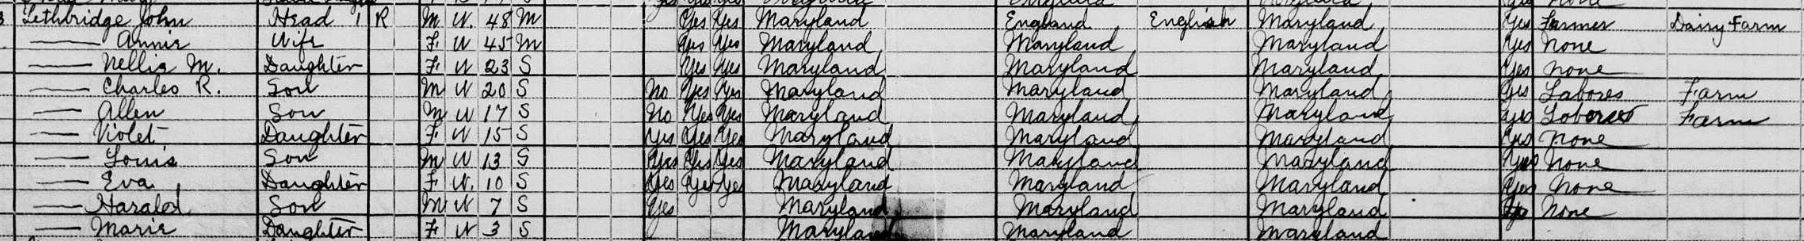 Lethbridge John Head 1 R M W 48 M Yes Yes Maryland England English Maryland Yes Farmer Dairy Farm
—— Annie Wife F W 45 M Yes Yes Maryland Maryland Maryland Yes None
—— Nellie M. Daughter F W 23 S Yes Yes Maryland Maryland Maryland Yes None
—— Charles R. Son M W 20 S No Yes Yes Maryland Maryland Maryland Yes Laborer Farm
—— Allen Son M W 17 S No Yes Yes Maryland Maryland Maryland Yes Laborer Farm
—— Violet Daughter F W 15 S Yes Yes Yes Maryland Maryland Maryland Yes None
—— Louis Son M W 13 S Yes Yes Yes Maryland Maryland Maryland Yes None
—— Eva Daughter F W. 10 S Yes Yes Yes Maryland Maryland Maryland Yes None
—— Harald Son M W 7 S Yes Maryland Maryland Maryland None
—— Marie Daughter F W 3 S Maryland Maryland Maryland